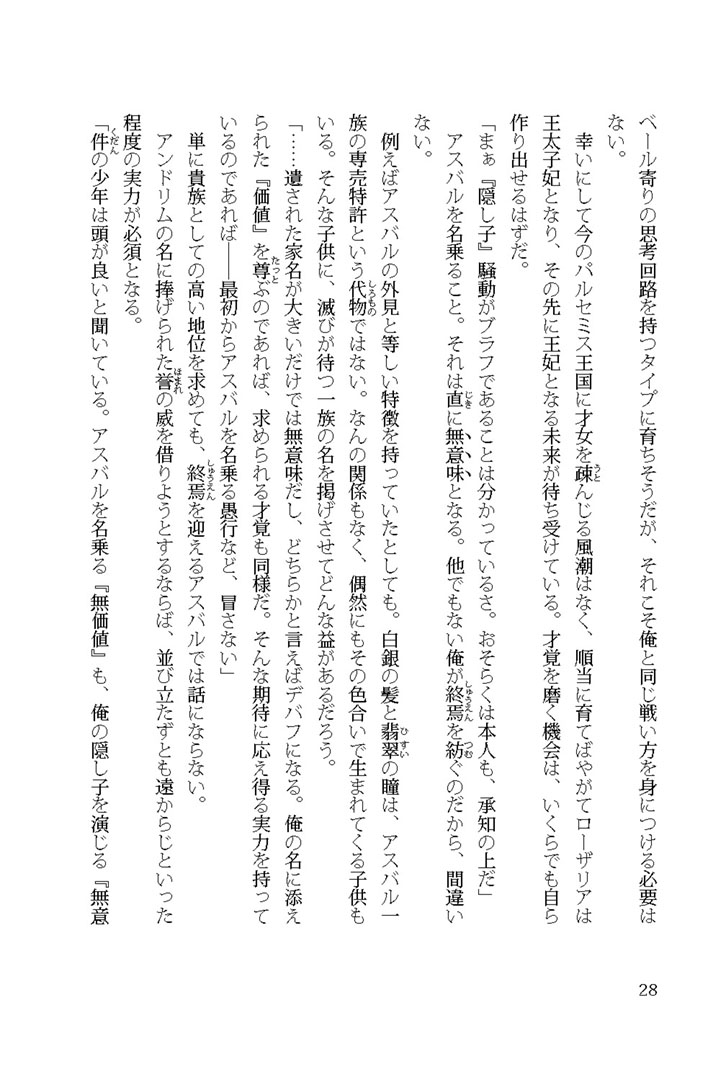 ベール寄りの思考回路を持つタイプに育ちそうだが、それこそ俺と同じ戦い方を身につける必要は
ない。
　幸いにして今のパルセミス王国に才女を疎んじる風潮はなく、順当に育てばやがてローザリアは
王太子妃となり、その先に王妃となる未来が待ち受けている。才覚を磨く機会は、いくらでも自ら
作り出せるはずだ。
「まぁ『隠し子』騒動がブラフであることは分かっているさ。おそらくは本人も、承知の上だ」
　アスバルを名乗ること。それは直に無意味となる。他でもない俺が終焉を紡ぐのだから、間違い
ない。
　例えばアスバルの外見と等しい特徴を持っていたとしても。白銀の髪と翡翠の瞳は、アスバル一
族の専売特許という代物ではない。なんの関係もなく、偶然にもその色合いで生まれてくる子供も
いる。そんな子供に、滅びが待つ一族の名を掲げさせてどんな益があるだろう。
「……遺された家名が大きいだけでは無意味だし、どちらかと言えばデバフになる。俺の名に添え
られた『価値』を尊ぶのであれば、求められる才覚も同様だ。そんな期待に応え得る実力を持って
いるのであれば――最初からアスバルを名乗る愚行など、冒さない」
　単に貴族としての高い地位を求めても、終焉を迎えるアスバルでは話にならない。
　アンドリムの名に捧げられた誉の威を借りようとするならば、並び立たずとも遠からじといった
程度の実力が必須となる。
「件の少年は頭が良いと聞いている。アスバルを名乗る『無価値』も、俺の隠し子を演じる『無意
28